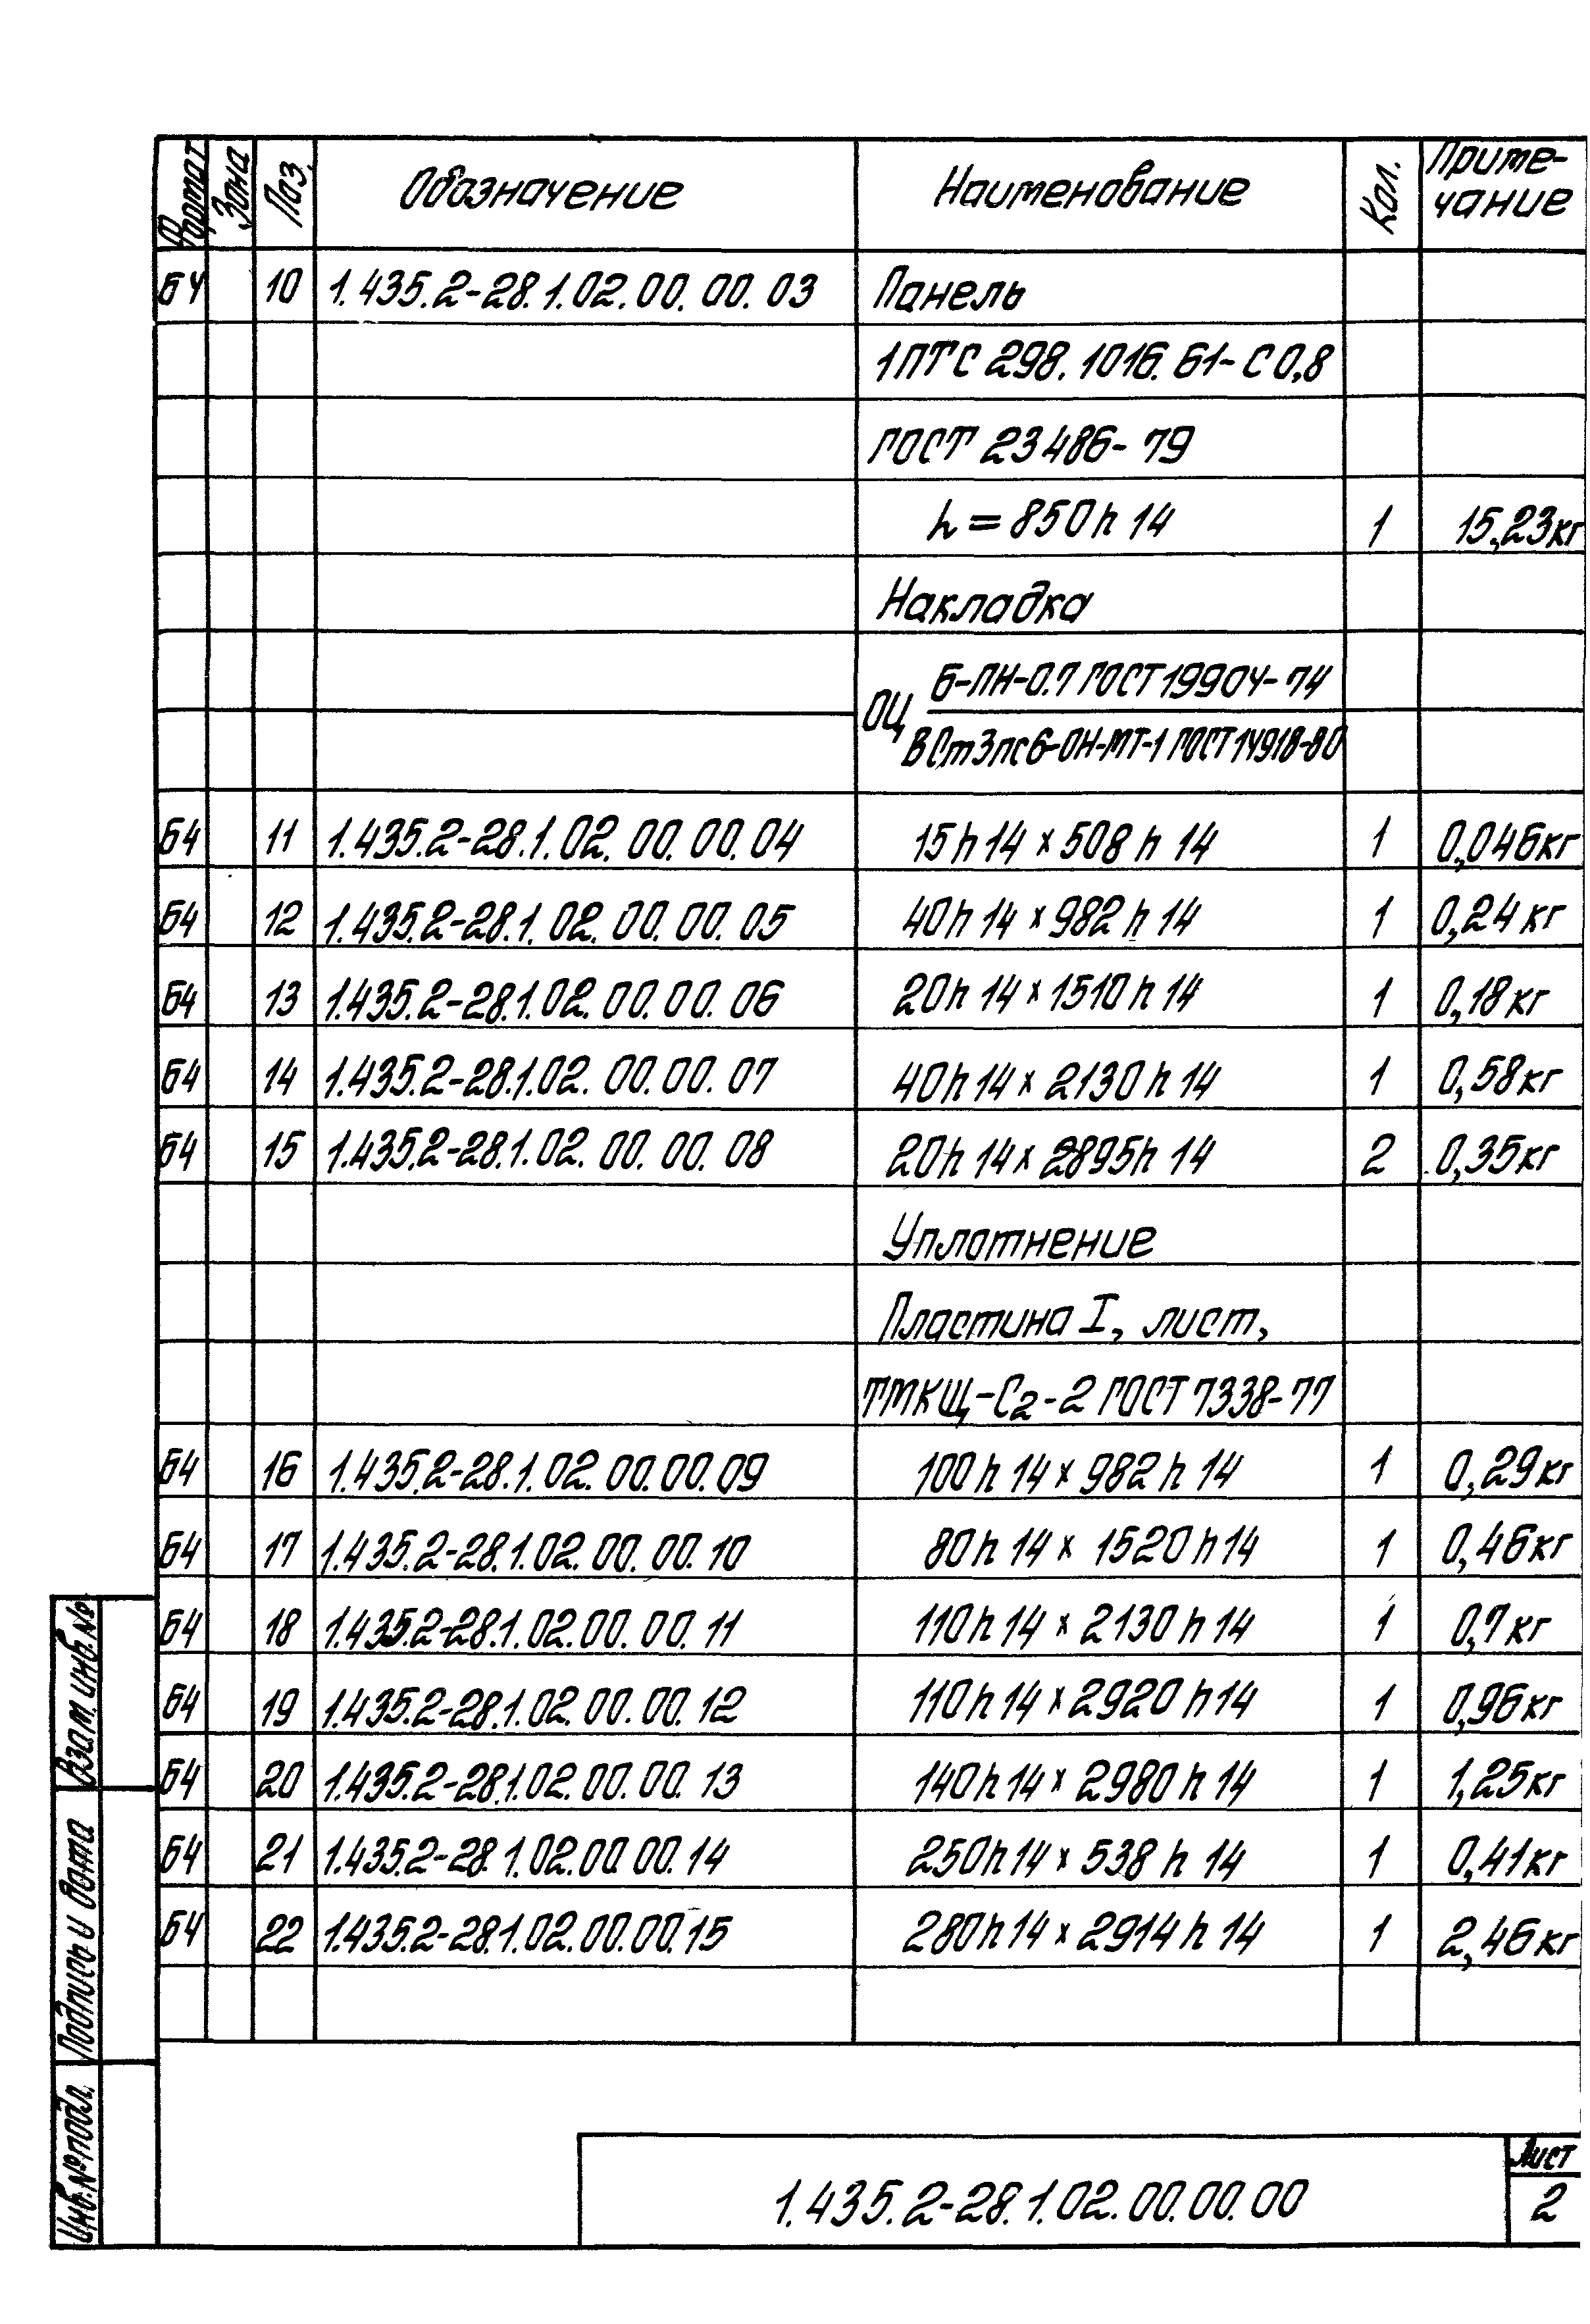 Формат Зона Поз. Обозначение Наименование Кол. Приме-
чание
БЧ 10 1.435.2-28.1.02.00.00.03 Панель
1ПТС 298.1016.Б1-С0,8
ГОСТ 23486-79
h=850h14 1 15,23кг
Накладка
ОЦ Б-ПН-0.7 ГОСТ 19904-74
ВСт3пс6-ОН-МТ-1 ГОСТ 14918-80
БЧ 11 1.435.2-28.1.02.00.00.04 15h14×508h14 1 0,046кг
БЧ 12 1.435.2-28.1.02.00.00.05 40h14×982h14 1 0,24кг
БЧ 13 1.435.2-28.1.02.00.00.06 20h14×1510h14 1 0,18кг
БЧ 14 1.435.2-28.1.02.00.00.07 40h14×2130h14 1 0,58кг
БЧ 15 1.435.2-28.1.02.00.00.08 20h14×2895h14 2 0,35кг
Уплотнение
Пластина I, лист,
ТМКЩ-С2-2 ГОСТ 7338-77
БЧ 16 1.435.2-28.1.02.00.00.09 100h14×982h14 1 0,29кг
БЧ 17 1.435.2-28.1.02.00.00.10 80h14×1520h14 1 0,46кг
БЧ 18 1.435.2-28.1.02.00.00.11 110h14×2130h14 1 0,7кг
БЧ 19 1.435.2-28.1.02.00.00.12 110h14×2920h14 1 0,96кг
БЧ 20 1.435.2-28.1.02.00.00.13 140h14×2980h14 1 1,25кг
БЧ 21 1.435.2-28.1.02.00.00.14 250h14×538h14 1 0,41кг
БЧ 22 1.435.2-28.1.02.00.00.15 280h14×2914h14 1 2,46кг
Взам. инв. №
Подпись и дата
Инв. № подл.
1.435.2-28.1.02.00.00.00
Лист
2